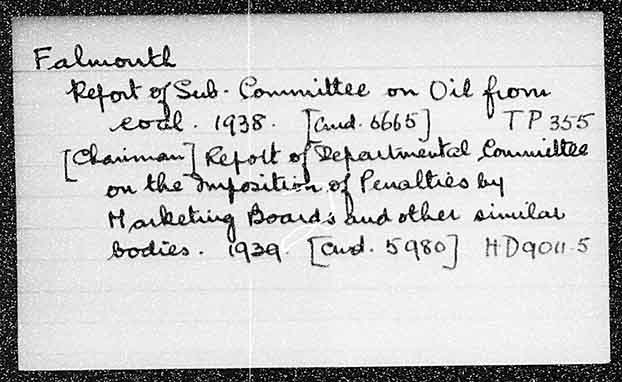 Falmouth
Report of Sub-Committee on Oil from
coal. 1938. [Cmd. 5665] TP 355
[Chairman] Report of Departmental Committee
on the Imposition of Penalties by
Marketing Boards and other similar
bodies. 1939. [Cmd. 5980] HD9011.5